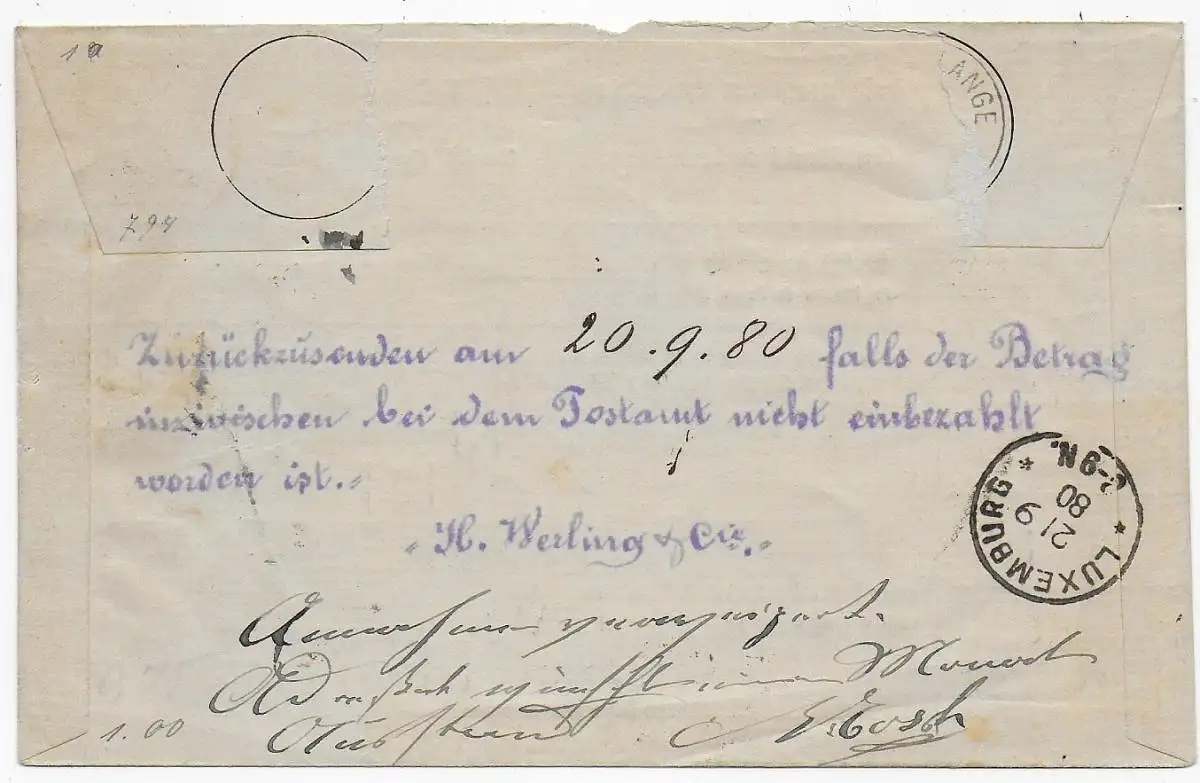 LANGE
794
Zurückzusenden am 20.9.80 falls der Betrag
inzwischen bei dem Postamt nicht einbezahlt
worden ist.
H. Werling & Cie.
LUXEMBURG
21 9
80
Annahme verweigert.
Adressat wünscht einen Monat
Ausstand
1.00